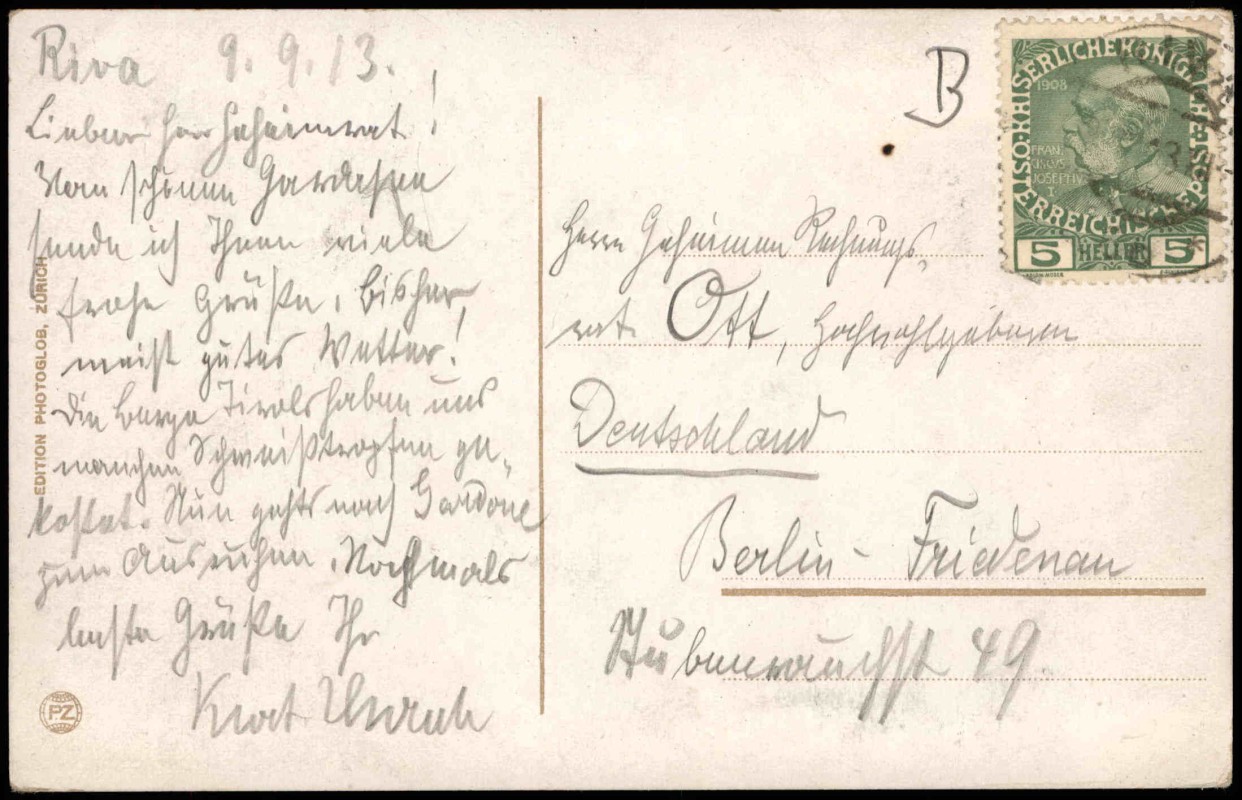 Riva 9. 9. 13.
Lieber Herr Geheimrat!
Vom schönen Gardasee
sende ich Ihnen viele
frohe Grüße. Bisher
meist gutes Wetter!
Die Berge Tirols haben uns
manchen Schweißtropfen ge-
kostet. Nun gehts nach Gardone
zum Ausruhen. Nochmals
beste Grüße Ihr
Kurt
EDITION PHOTOGLOB, ZÜRICH
PZ
B
Herrn Geheimen Rechnungs-
rat Ott, Hochwohlgeboren
Deutschland
Berlin-Friedenau
Stubenrauchst 49.
KAISERLICHE KÖNIGLICHE POST
ÖSTERREICHISCHE
1908
FRANCISCVS
JOSEPHVS I
5 HELLER 5